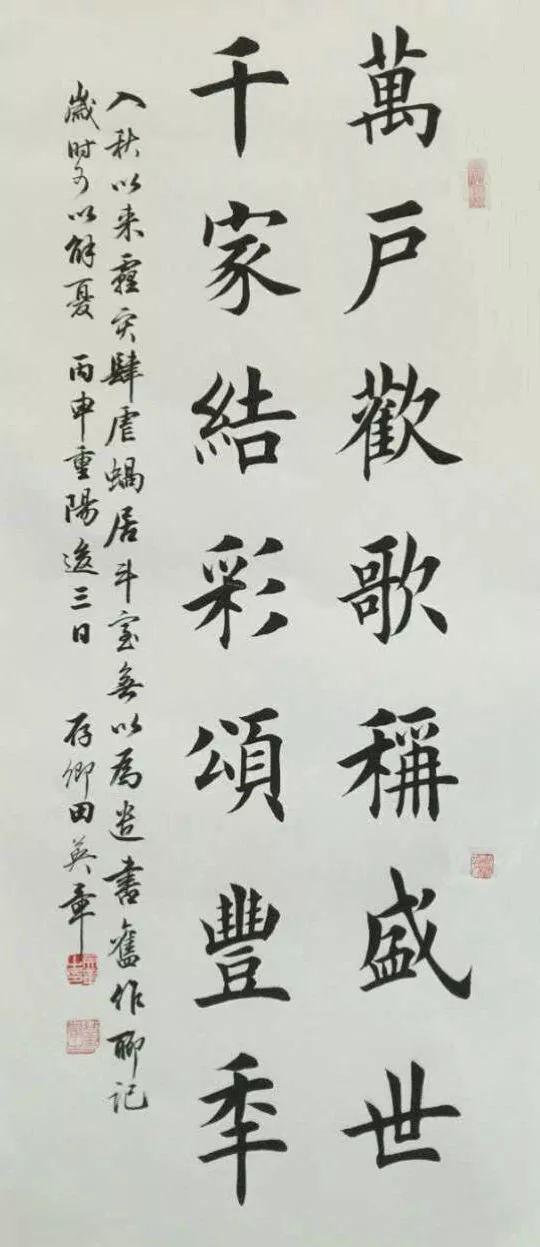 萬户歡歌稱盛世
千家結彩頌豐秊
入秋以来霾灾肆虐蝸居斗室無以為遣書舊作聊记
歲时以解憂 丙申重陽後三日 存卿田英章